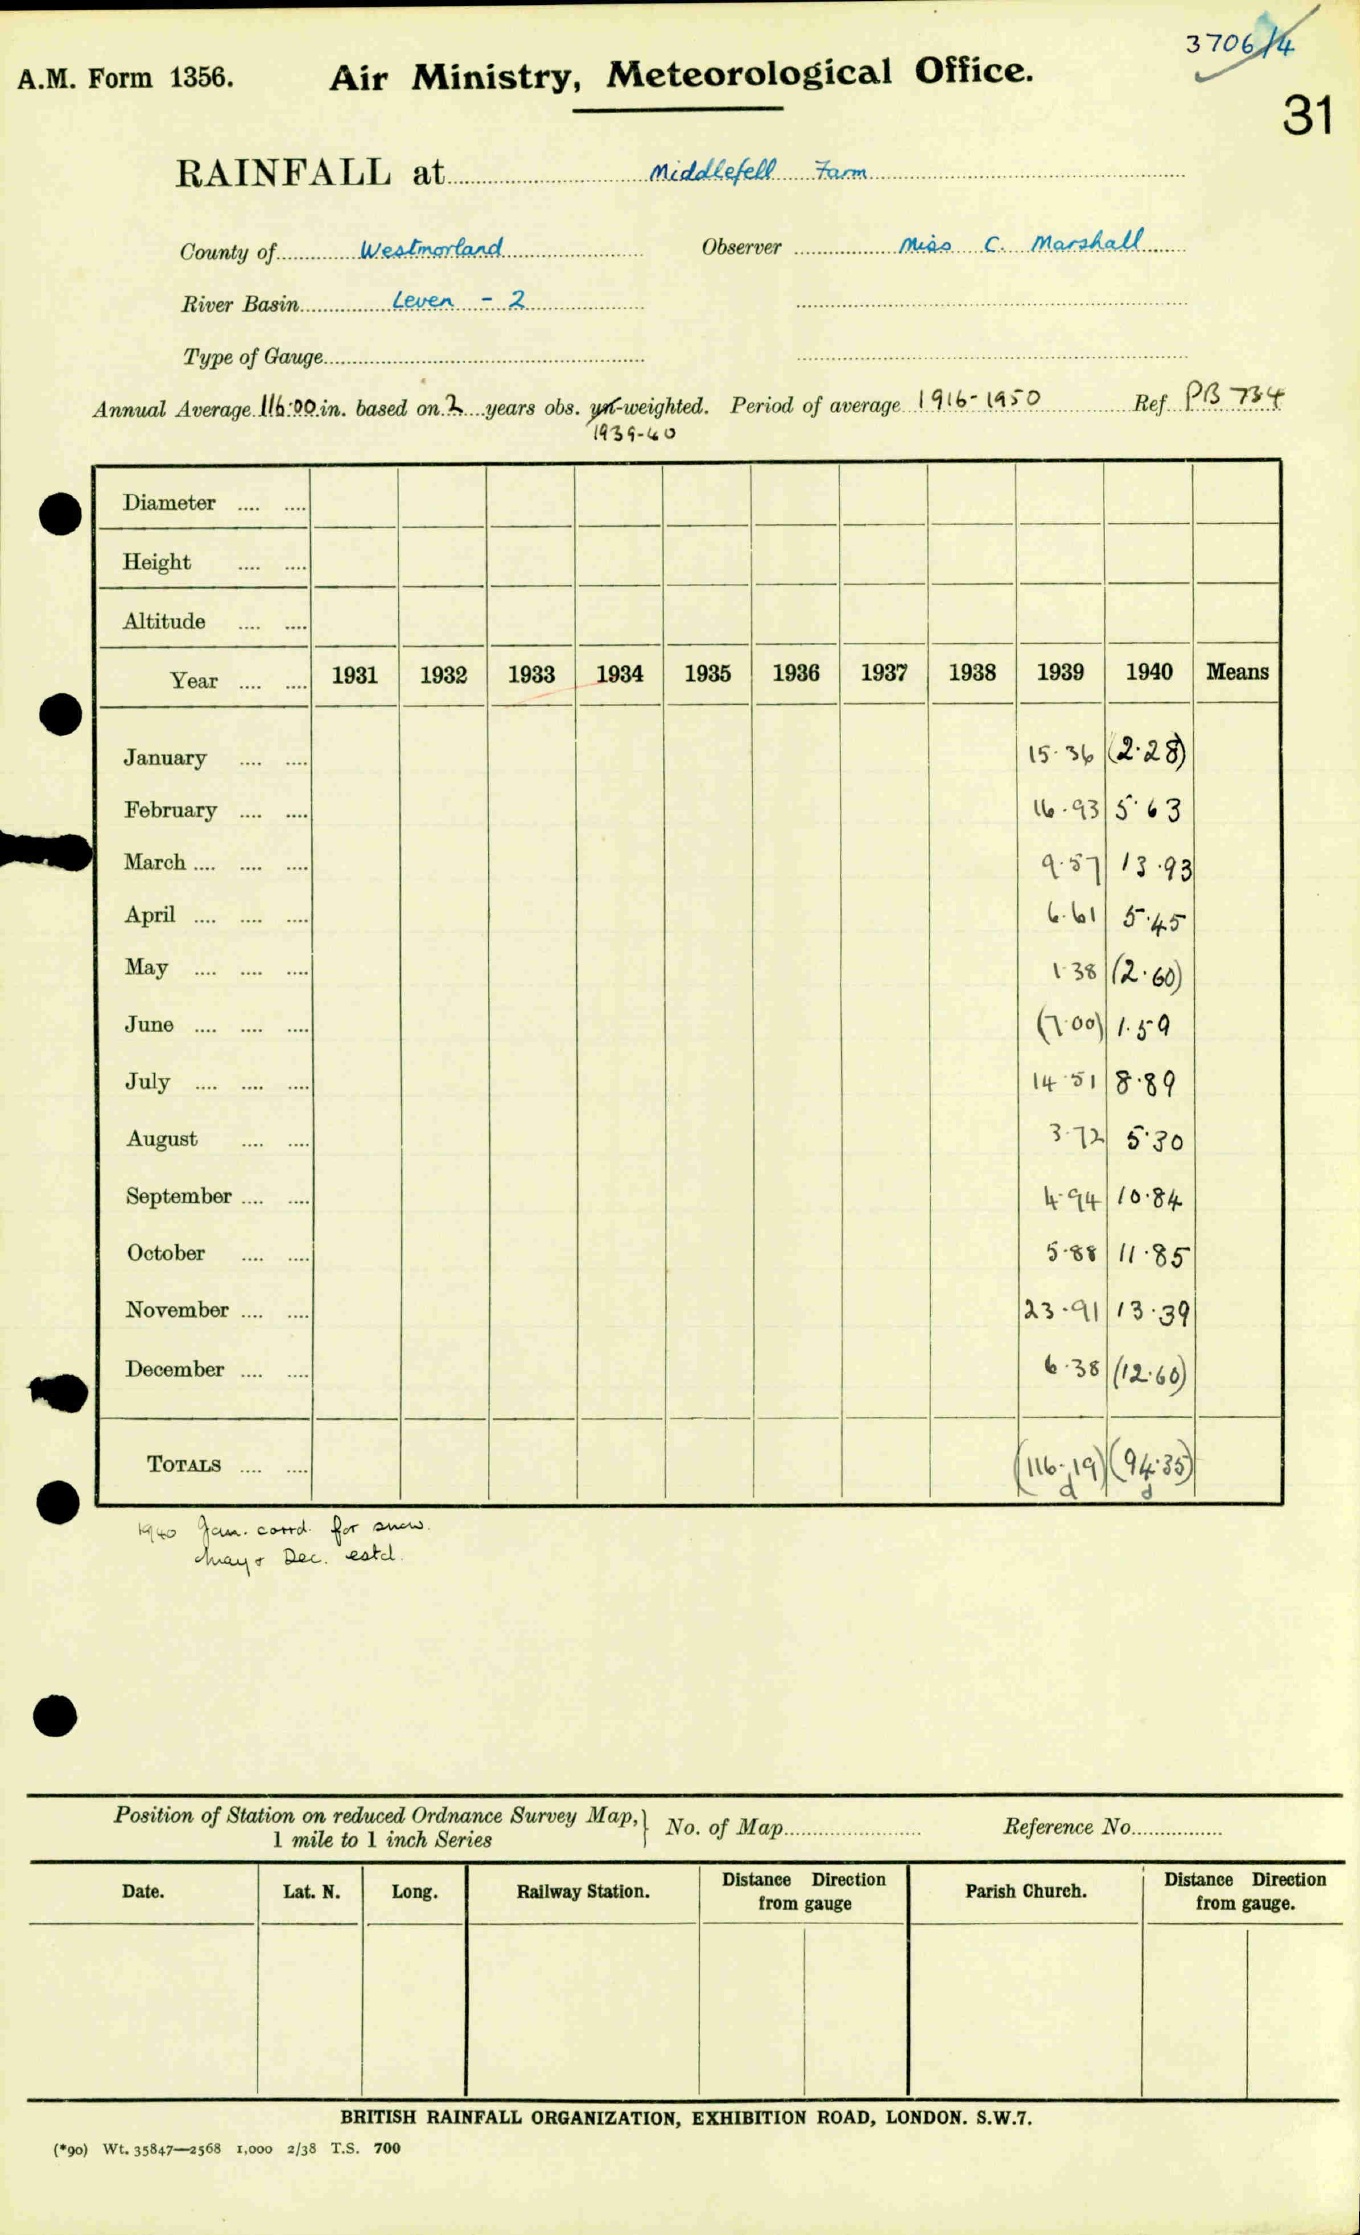 3706/4
A.M. Form 1356. Air Ministry, Meteorological Office.
31
RAINFALL at Middlefell Farm
County of Westmorland Observer Miss C. Marshall
River Basin Leven - 2
Type of Gauge
Annual Average 116.00 in. based on 2 years obs. un-weighted. Period of average 1916-1950 Ref. PB 734
1939-40
Diameter .... ....
Height .... ....
Altitude .... ....
Year .... .... 1931 1932 1933 1934 1935 1936 1937 1938 1939 1940 Means
January .... .... 15.36 (2.28)
February .... .... 16.93 5.63
March .... .... .... 9.57 13.93
April .... .... .... 6.61 5.45
May .... .... .... 1.38 (2.60)
June .... .... .... (7.00) 1.59
July .... .... .... 14.51 8.89
August .... .... 3.72 5.30
September .... .... 4.94 10.84
October .... .... 5.88 11.85
November .... .... 23.91 13.39
December .... .... 6.38 (12.60)
TOTALS .... .... (116.19) (94.35)
d d
1940 Jan. corrd. for snow.
May & Dec. estd.
Position of Station on reduced Ordnance Survey Map, } No. of Map Reference No.
1 mile to 1 inch Series
Date. Lat. N. Long. Railway Station. Distance Direction from gauge Parish Church. Distance Direction from gauge.
BRITISH RAINFALL ORGANIZATION, EXHIBITION ROAD, LONDON. S.W.7.
(*90) Wt. 35847—2568 1,000 2/38 T.S. 700